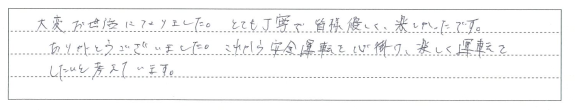 大変お世話になりました。とても丁寧で皆様優しく、楽しかったです。
ありがとうございました。これから安全運転を心掛け、楽しく運転を
したいと考えています。